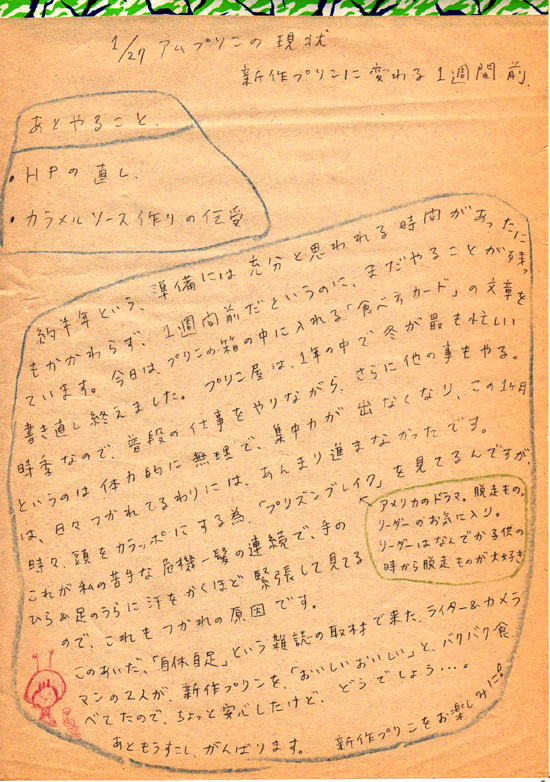 1/27 アムプリンの現状
新作プリンに変わる1週間前.
あとやること.
・HPの直し.
・カラメルソース作りの伝受
約半年という、準備には充分と思われる時間があったに
もかかわらず、1週間前だというのに、まだやることが残っ
ています。今日は、プリンの箱の中に入れる「食べ方カード」の文章を
書き直し終えました。プリン屋は、1年の中で冬が最も忙しい
時季なので、普段の仕事をやりながら、さらに他の事もやる。
というのは体力的に無理で、集中力が出なくなり、この1ヶ月
は、日々つかれてるわりには、あんまり進まなかったです。
時々、頭をカラッポにする為、「プリズンブレイク」を見てるんですが、
これが私の苦手な危機一髪の連続で、手の
ひら&足のうらに汗をかくほど緊張して見てる
ので、これもつかれの原因です。
アメリカのドラマ。脱走もの。
リーダーのお気に入り。
リーダーはなんでか子供の
時から脱走ものが大好き
このあいだ、「自休自足」という雑誌の取材で来た、ライター&カメラ
マンの2人が、新作プリンを、「おいしいおいしい」と、バクバク食
べてたので、ちょっと安心したけど、どうでしょう…。
あともうすこし、がんばります。 新作プリンをお楽しみに!